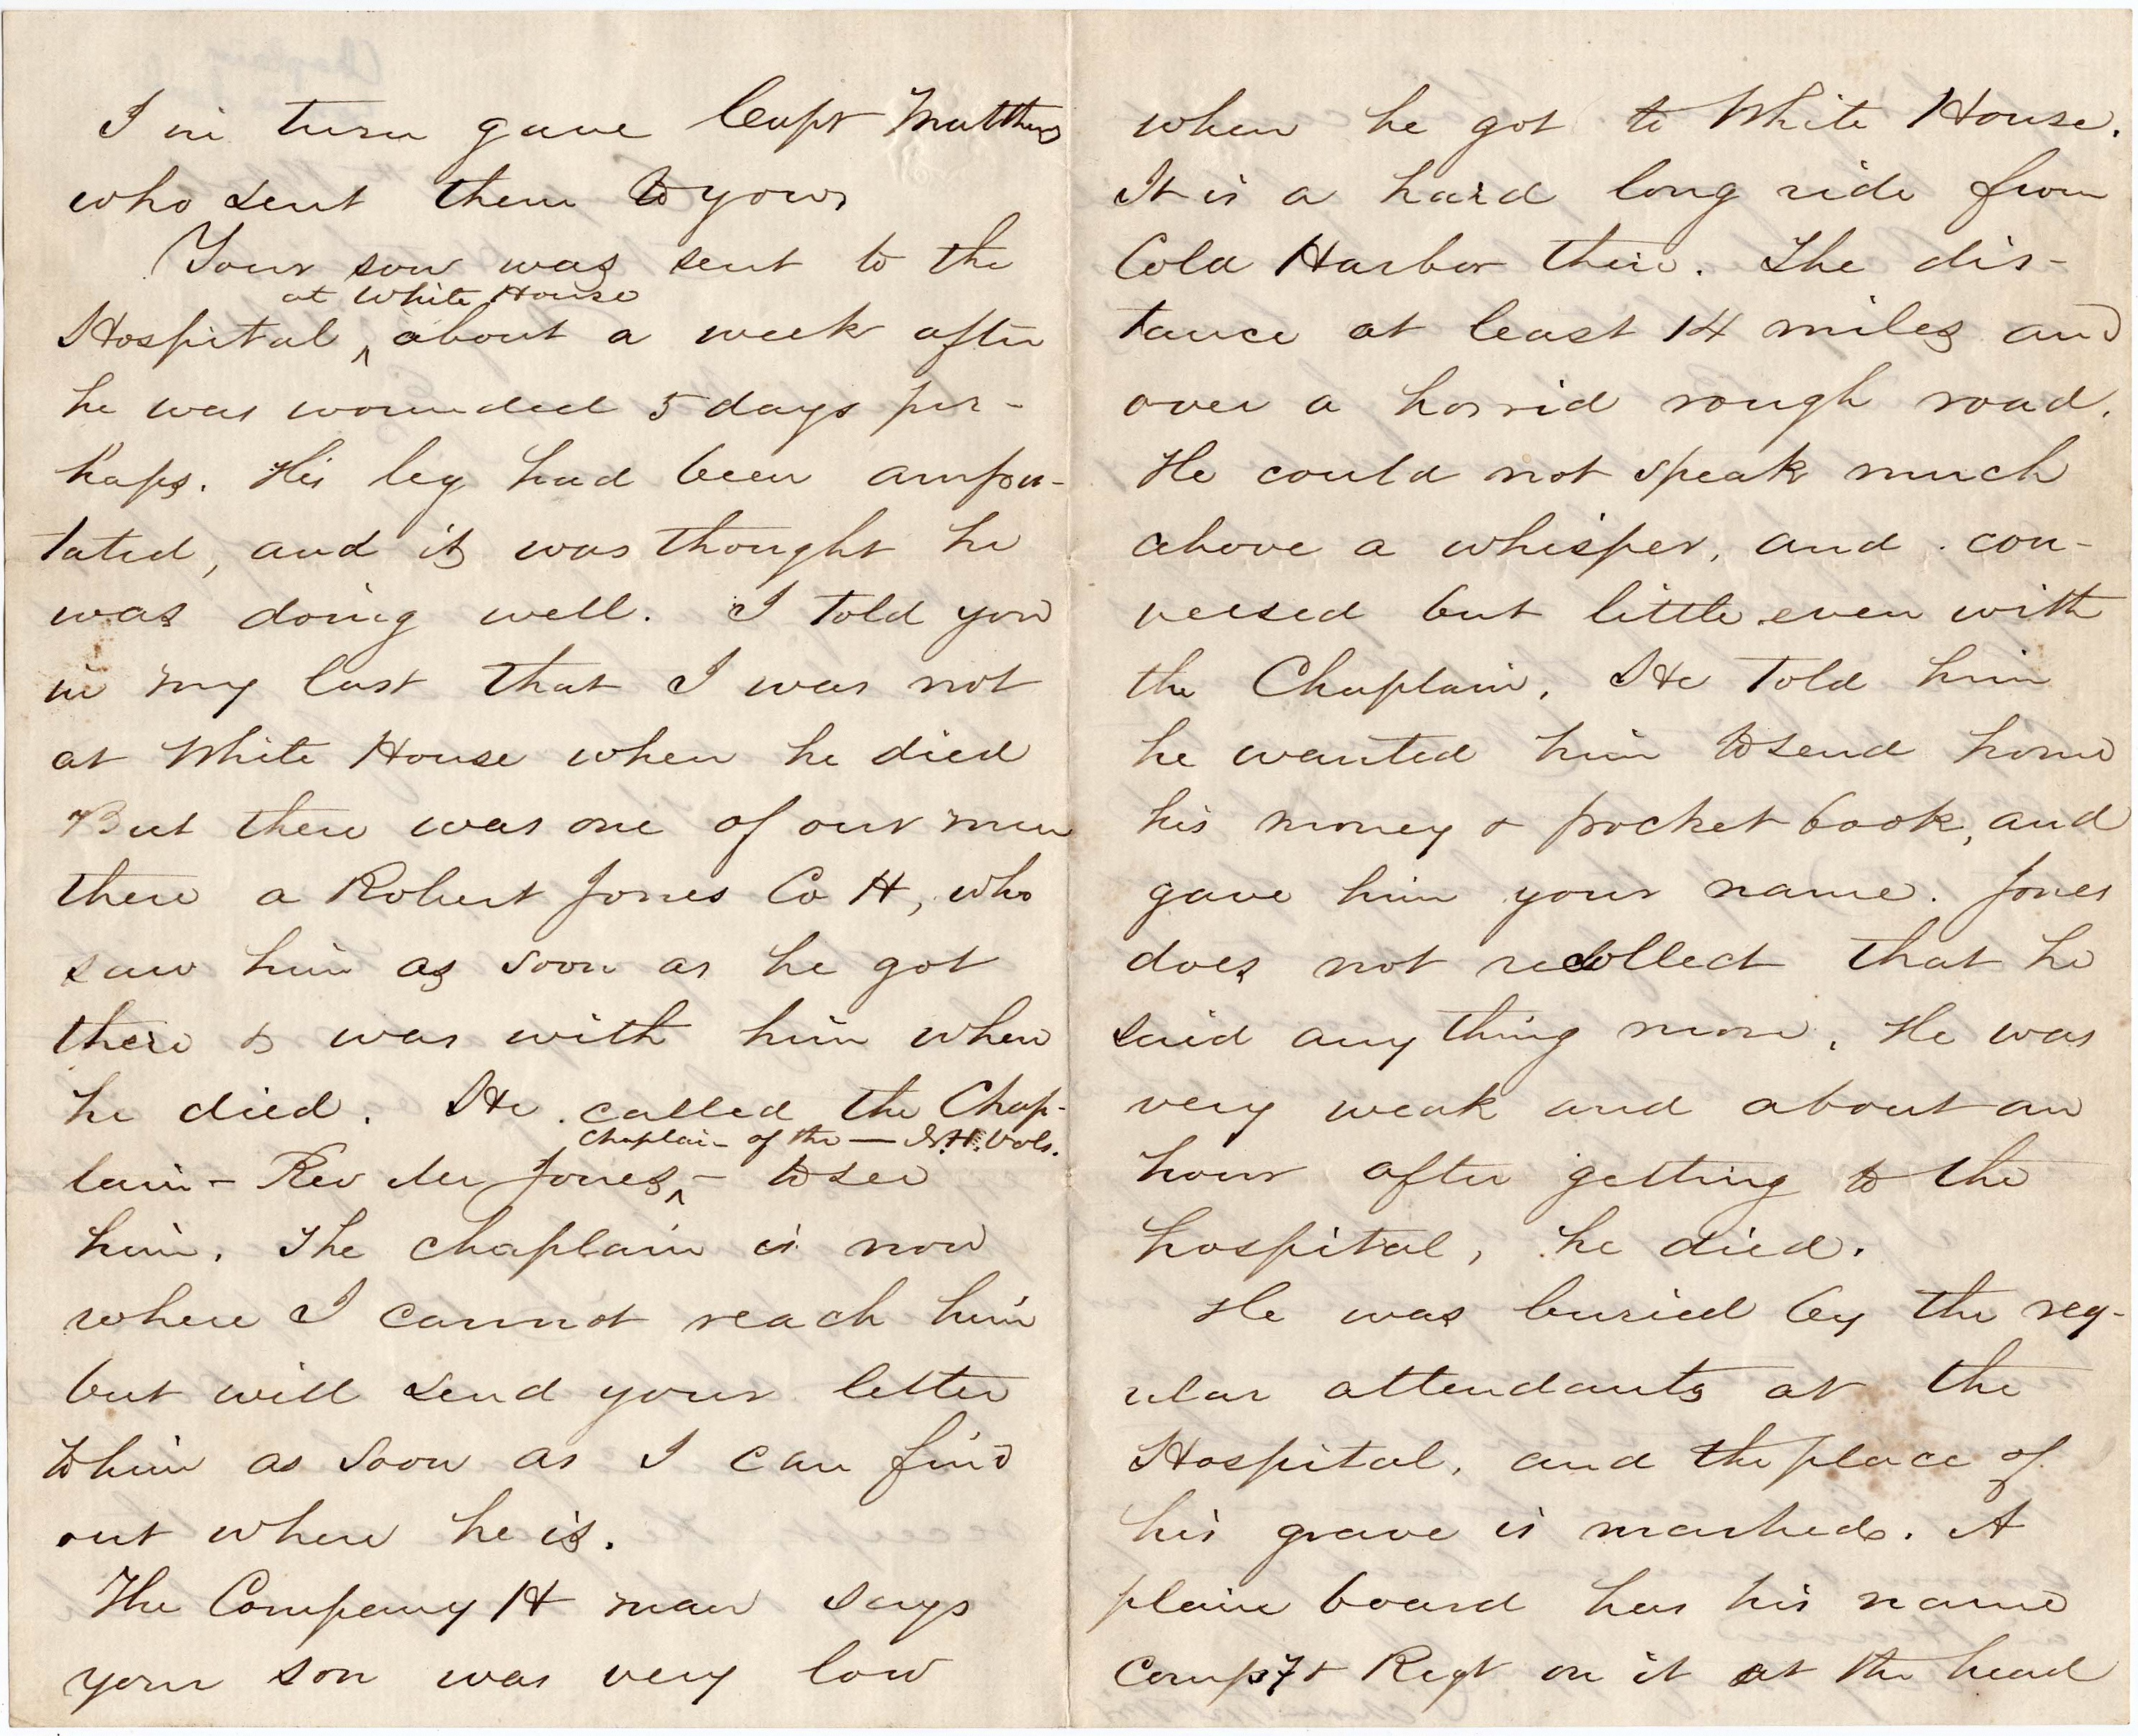 I in turn gave Capt Matthews
who sent them to you,
Your son was sent to the
at White House
Hospital ^ about a week after
he was wounded 5 days per-
haps. His leg had been ampu-
tated, and it was thought he
was doing well. I told you
in my last that I was not
at White House when he died
But there was one of our men
there a Robert Jones Co H, who
saw him as soon as he got
there & was with him when
he died. He called the Chap-
chaplain of the — N.H. Vols.
lain - Rev Mr Jones ^ - to see
him. The chaplain is now
where I cannot reach him
but will send your letter
to him as soon as I can find
out where he is.
The Company H man says
your son was very low
when he got to White House.
It is a hard long ride from
Cold Harbor there. The dis-
tance at least 14 miles and
over a horrid rough road.
He could not speak much
above a whisper, and con-
versed but little even with
the Chaplain. He told him
he wanted him to send home
his money & pocket book, and
gave him your name. Jones
does not recollect that he
said any thing more. He was
very weak and about an
hour after getting to the
hospital, he died.
He was buried by the reg-
ular attendants at the
Hospital, and the place of
his grave is marked. A
plain board has his name
Comp & Regt on it at the head